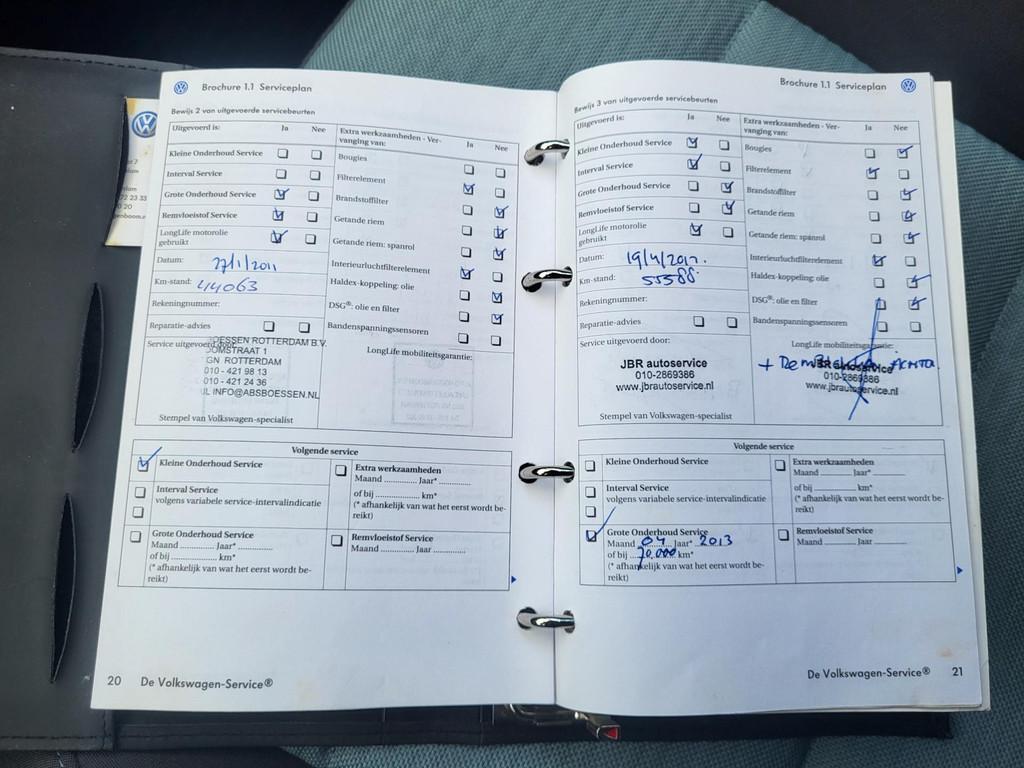 Brochure 1.1 Serviceplan
Bewijs 2 van uitgevoerde servicebeurten
Uitgevoerd is: Ja Nee
Kleine Onderhoud Service
Interval Service
Grote Onderhoud Service
Remvloeistof Service
LongLife motorolie
gebruikt
Datum: 27/1/2011
Km-stand: 44063
Rekeningnummer:
Reparatie-advies
Service uitgevoerd door:
OESSEN ROTTERDAM B.V.
OOMSTRAAT 1
GN ROTTERDAM
010 - 421 98 13
010 - 421 24 36
INFO@ABSBOESSEN.NL
Stempel van Volkswagen-specialist
Extra werkzaamheden - Ver-
vanging van: Ja Nee
Bougies
Filterelement
Brandstoffilter
Getande riem
Getande riem: spanrol
Interieurluchtfilterelement
Haldex-koppeling: olie
DSG®: olie en filter
Bandenspanningssensoren
LongLife mobiliteitsgarantie:
Volgende service
Kleine Onderhoud Service
Interval Service
volgens variabele service-intervalindicatie
Grote Onderhoud Service
Maand ............ Jaar* ............
of bij ............ km*
(* afhankelijk van wat het eerst wordt be-
reikt)
Extra werkzaamheden
Maand ............ Jaar* ............
of bij ............ km*
(* afhankelijk van wat het eerst wordt be-
reikt)
Remvloeistof Service
Maand ............ Jaar ............
20 De Volkswagen-Service®
Brochure 1.1 Serviceplan
Bewijs 3 van uitgevoerde servicebeurten
Uitgevoerd is: Ja Nee
Kleine Onderhoud Service
Interval Service
Grote Onderhoud Service
Remvloeistof Service
LongLife motorolie
gebruikt
Datum: 19/4/2012.
Km-stand: 55588
Rekeningnummer:
Reparatie-advies
Service uitgevoerd door:
JBR autoservice
010-2869386
www.jbrautoservice.nl
Stempel van Volkswagen-specialist
Extra werkzaamheden - Ver-
vanging van: Ja Nee
Bougies
Filterelement
Brandstoffilter
Getande riem
Getande riem: spanrol
Interieurluchtfilterelement
Haldex-koppeling: olie
DSG®: olie en filter
Bandenspanningssensoren
LongLife mobiliteitsgarantie:
JBR autoservice
010-2869386
www.jbrautoservice.nl
Volgende service
Kleine Onderhoud Service
Interval Service
volgens variabele service-intervalindicatie
Grote Onderhoud Service
Maand 04 Jaar* 2013
of bij 70.000 km*
(* afhankelijk van wat het eerst wordt be-
reikt)
Extra werkzaamheden
Maand ............ Jaar* ............
of bij ............ km*
(* afhankelijk van wat het eerst wordt be-
reikt)
Remvloeistof Service
Maand ............ Jaar ............
De Volkswagen-Service® 21